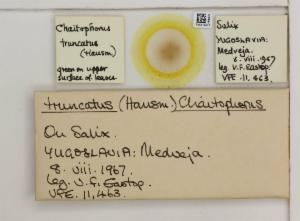 Chaitophorus
truncatus
(Hausm)
green on upper
surface of leaves
Salix
YUGOSLAVIA:
Medveja.
8. viii. 1967
leg. V.F. Eastop.
VFE. 11,463.
truncatus (Hausm) Chaitophorus
On Salix.
YUGOSLAVIA: Medveja.
8. viii. 1967.
leg. V. F. Eastop.
VFE. 11,463.